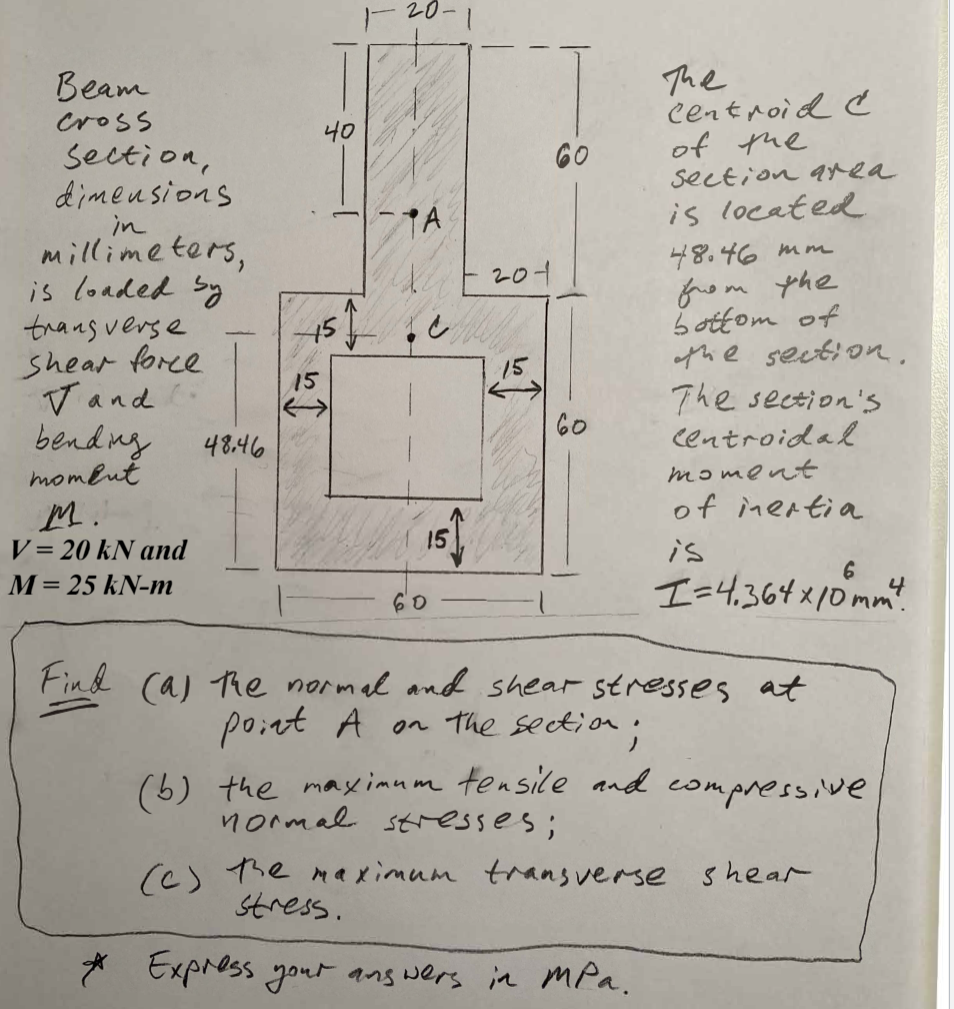 20
Beam
cross
section,
dimensions
in
millimeters,
is loaded by
transverse
shear force
V and
bending
moment
M.
V = 20 kN and
M = 25 kN-m
40
A
60
20
15
C
15
15
48.46
60
15
60
The
centroid C
of the
section area
is located
48.46 mm
from the
bottom of
the section.
The section's
centroidal
moment
of inertia
is
I=4.364x10⁶mm⁴.
Find (a) the normal and shear stresses at
point A on the section;
(b) the maximum tensile and compressive
normal stresses;
(c) the maximum transverse shear
stress.
* Express your answers in MPa.